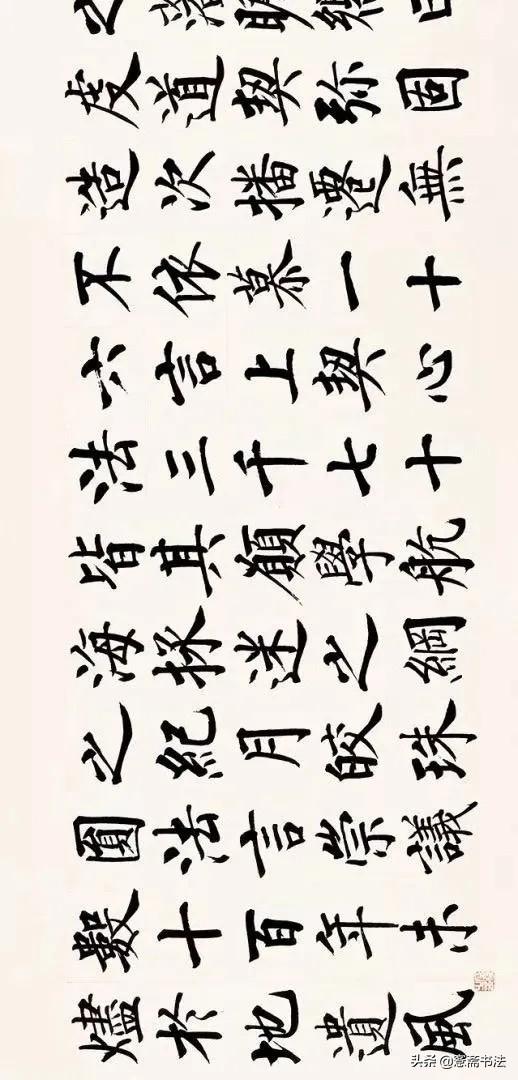 度道契弥固
造次播遷無
不依慕一十
六言上契心
法三千七十
皆其願學航
海採述之綱
之紀月皎珠
圓法言崇議
數十百年未
燼於地遺風
头条@憲斋书法